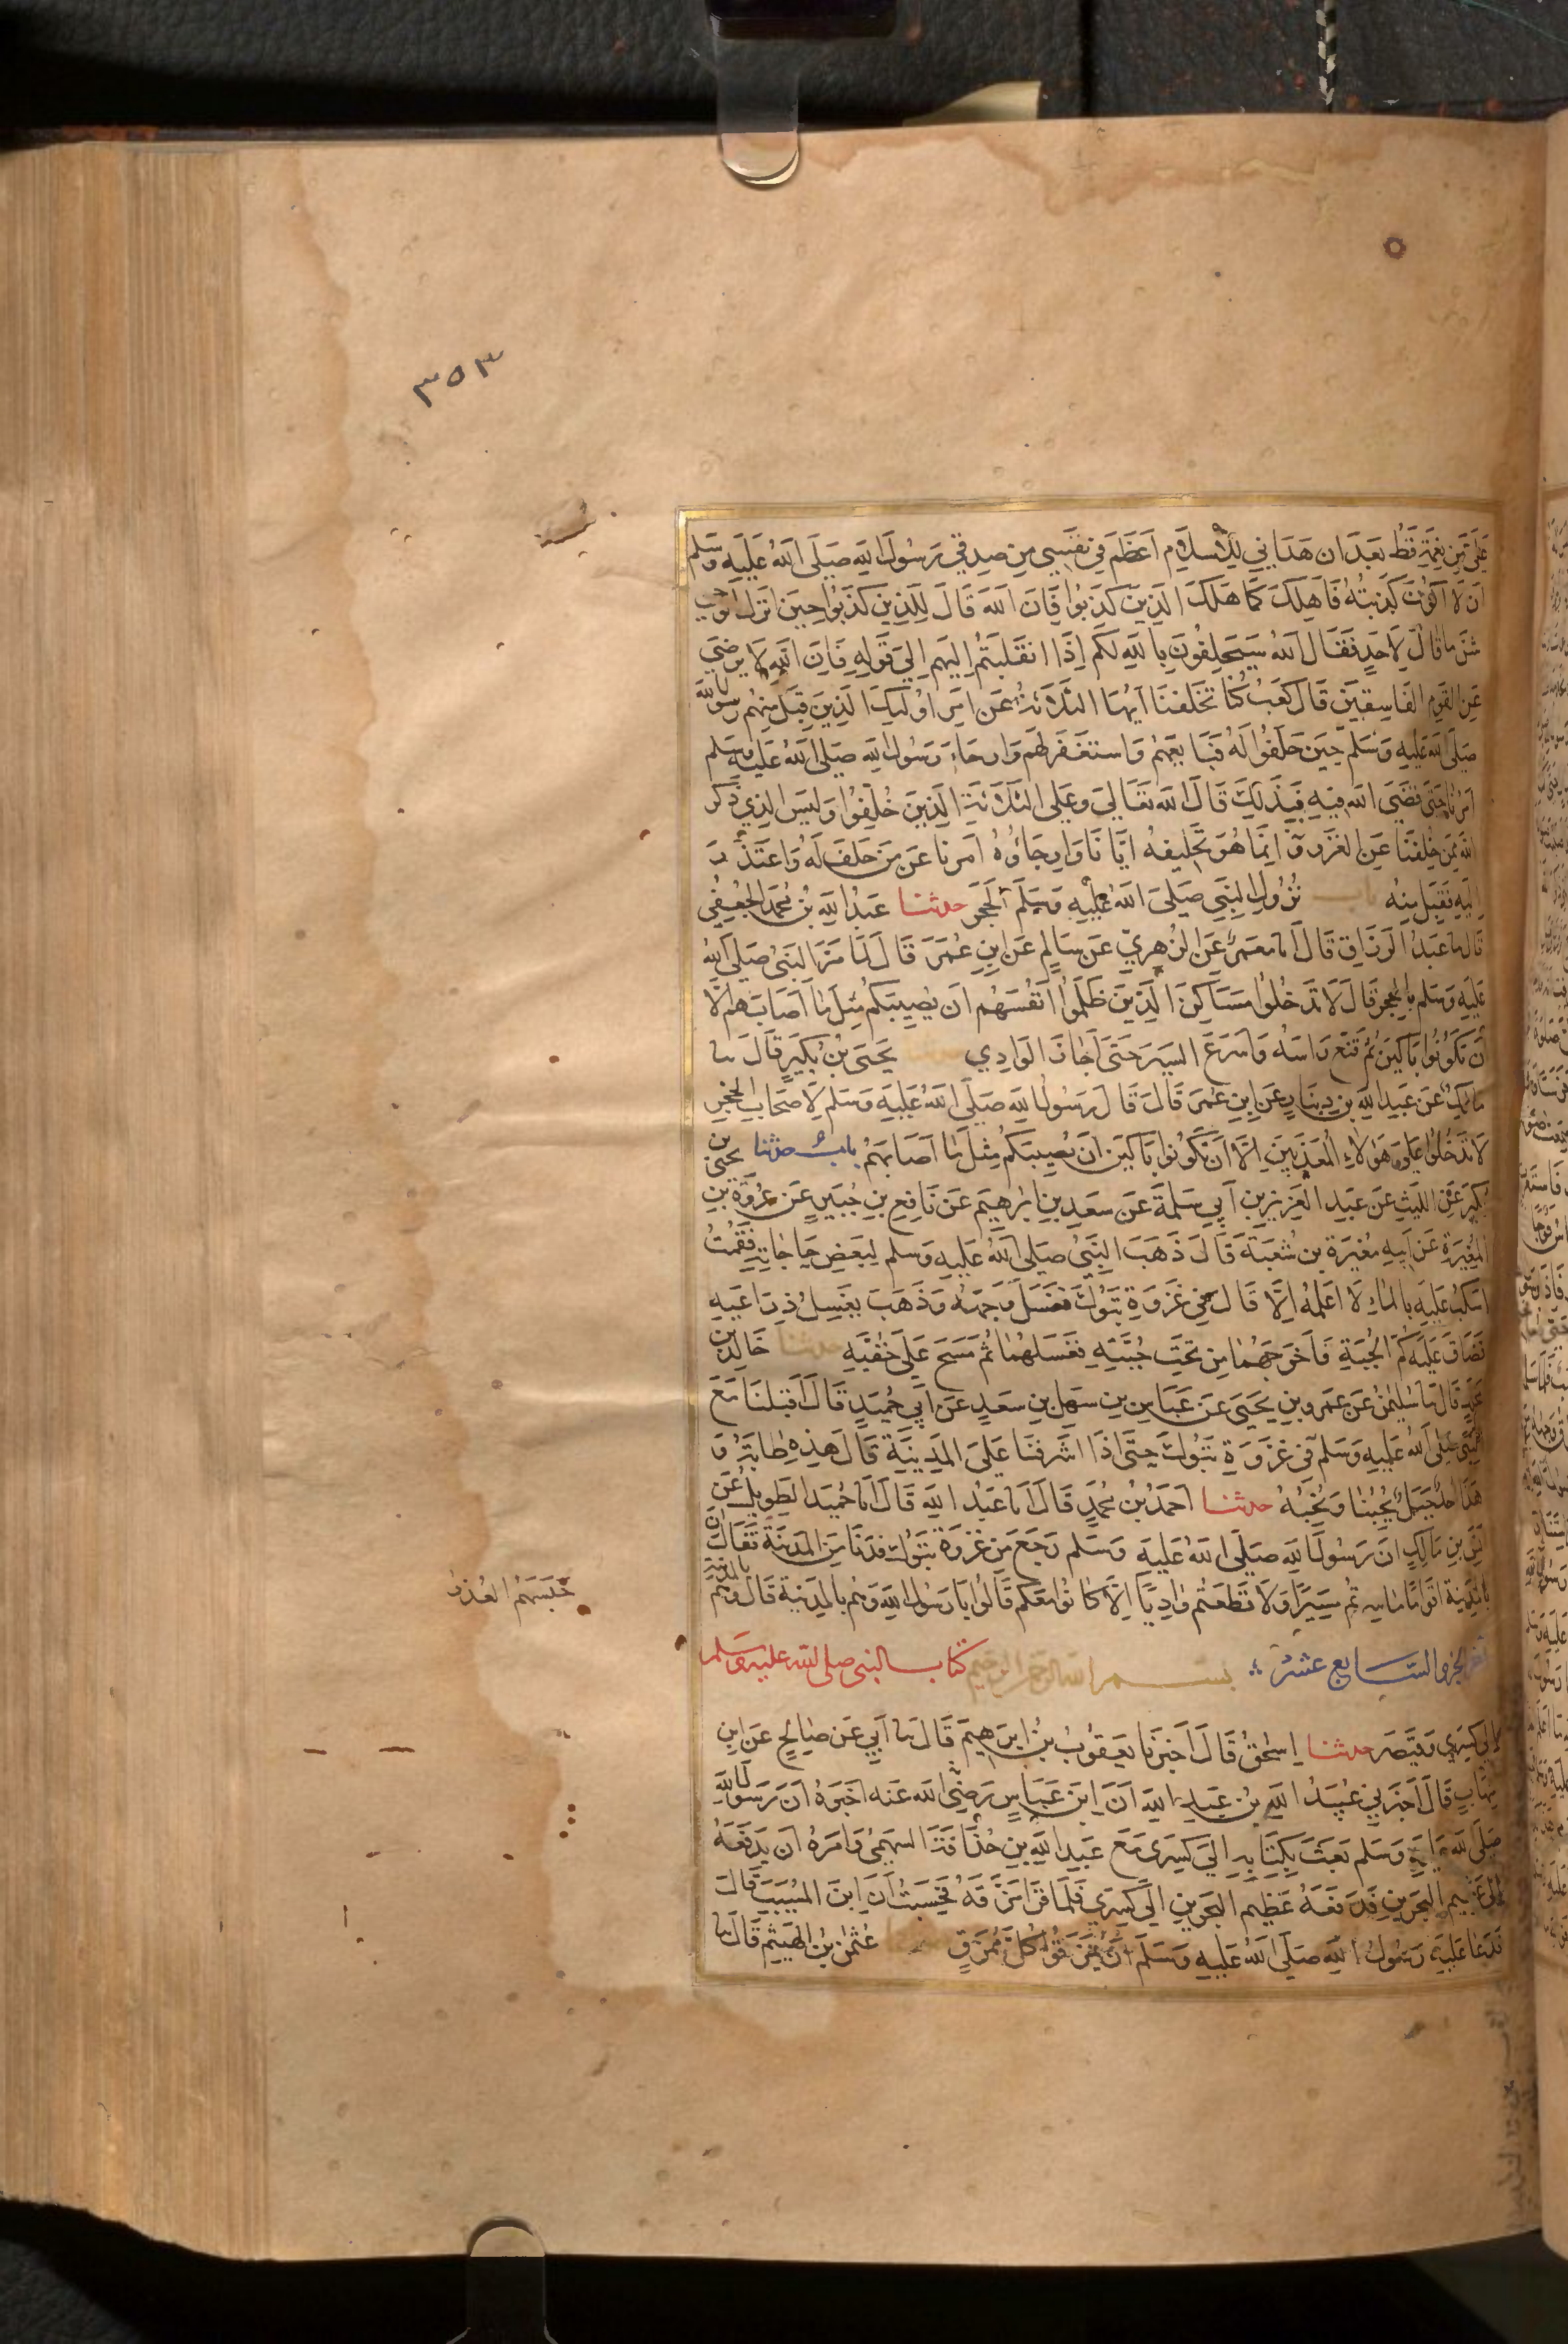 ٣٥٣
عَلَيَّ مِن نِعْمَةٍ قَطُّ بَعْدَ ان هَدَانِي لِلاسلام اَعْظَمَ فِي نَفْسِي مِن صِدقِي رَسُولَ اللهِ صَلَى اللهُ عَلَيهِ وسَلم
ان لَا اكونَ كَذَبتُهُ فَاهلِكَ كَمَا هَلَكَ الذِينَ كَذَبُوا فَانَ اللهَ قَالَ لِلذِينَ كَذَبُوا حِينَ انزل الوحي
شَرَ مَا قَالَ لِاَحَدٍ فَقَال اللهُ سَيَحلِفُونَ بِاللهِ لكُم اِذَا انقَلَبتُم اِليهِم اِلي قَولِهِ فَانَ اللهَ لَا يرضي
عَنِ القَومِ الفَاسِقِينَ قَالَ كَعب كُنَا تَخَلفنَا ايهَا الثَلَاثَةُ عَن امر اوليِكَ الذِينَ قَبِلَ مِنهُم رسول الله
صَلَى الله عَليهِ وَسَلم حِينَ حَلَفُوا لَهُ فَبَايعَهُم وَاستغفَر لهُم وَارجَاءَ رَسُول الله صَلى اللهُ عَليهِ وسَلم
امرنا حَتى قضَى الله فِيهِ فبِذلِكَ قَالَ الله تعَالي وعَلى الثَلَاثَةِ الذِينَ خُلِفُوا وَليس الذِي ذكر
الله مِمَن خلِفنَا عَنِ الغَزو انَّمَا هُوَ تَخلِيفهُ ايَانَا وَارجَاؤُهُ امرنا عَن مَن حَلفَ لهُ وَاعتَذرَ
اِليهِ فقَبِلَ مِنهُ باب نُزُولِ النَبِي صَلى اللهُ عَليهِ وَسَلم الحِجرَ حدثنا عَبدُ اللهِ بنُ مُحمَد الجُعفِي
قَال نا عَبدُ الرَزاق قَالَ انا مَعمَر عَنِ الزُهرِي عَن سَالِم عَنِ ابنِ عُمَرَ قَالَ لمَا مَرَ النَبيُ صَلى اللهُ
عَليهِ وَسَلم بِالحِجرِ قَالَ لَا تَدخُلُوا مَسَاكِنَ الذِينَ ظَلَمُوا انفُسَهُم ان يُصِيبَكُم مِثلَ مَا اصَابَهم اِلَّا
ان تَكُونُوا بَاكِينَ ثم قَنع رَاسَهُ وَاسرَعَ السَيرَ حَتى اجَازَ الوَادِي حدثنا يَحيَى بنُ بُكَيرٍ قَالَ نا
مَالِك عَن عَبدِ اللهِ بنِ دِينَارٍ عَن ابنِ عُمَرَ قَالَ قَالَ رَسُول اللهِ صَلَى اللهُ عَليهِ وَسَلم لِاصحَابِ الحِجرِ
لَا تَدخُلُوا عَلى هَؤلَاءِ المُعَذبِينَ اِلا ان تَكُونُوا بَاكِينَ ان يُصِيبَكُم مِثلَ مَا اصَابَهُم باب حدثنا يحيى بن
بُكَير عَنِ الليثِ عَن عَبدِ العَزِيزِ بنِ ابِي سَلمَةَ عَن سَعدِ بنِ ابرٰهِيم عَن نَافِعِ بنِ جُبَيرٍ عَن عُروَةَ بنِ
المغِيرَةِ عَن ابِيهِ مغِيرَةَ بنِ شُعبَةَ قَالَ ذَهَبَ النَبيُ صَلى اللهُ عَليهِ وَسلم لِبَعضِ حَاجَاتِهِ فَقُمتُ
اسكُبُ عَليهِ المَاءَ لَا اعلَمُهُ اِلَّا قَالَ فِي غَزوَةِ تَبُوكَ فغَسَلَ وَجهَهُ وَذَهَبَ يَغسِلُ ذِرَاعَيهِ
فَضَاقَ عَليهِ كُمُّ الجُبَةِ فَاخرَجَهُمَا مِن تَحتِ جُبَتِهِ فغَسَلهُمَا ثُم مَسَحَ عَلى خُفَّيهِ حدثنا خَالِد بن
مخلد قَالَ نا سُليمٰن عَن عَمرِو بنِ يَحيَى عَن عَبَاسِ بنِ سَهلِ بنِ سَعدٍ عَن ابِي حُمَيدٍ قَالَ اقبَلنَا مَعَ
النبي صَلى اللهُ عَليهِ وَسَلم فِي غَزوَةِ تَبُوكَ حَتَّى اذَا اشرفنَا عَلى المَدِينَةِ قَالَ هذِهِ طَابَةُ وَ
هَذَا احُد جَبَل يُحِبُنَا وَنُحِبُهُ حدثنا احمَدُ بنُ مُحمَدٍ قَالَ انا عَبدُ اللهِ قَالَ انا حُمَيد الطَوِيل عَن
انَسِ بنِ مَالِكٍ انَ رَسُول اللهِ صَلَى اللهُ عَليهِ وَسلم رَجَعَ مِن غَزوَةِ تَبُوكَ فدَنَا مِنَ المَدِينَةِ فَقَالَ انَّ
بِالمَدِينَةِ اقوَامًا مَا سِرتُم مَسِيرًا وَلَا قَطَعتُم وَادِيًا اِلا كَانُوا مَعَكُم قَالُوا يَا رَسُول اللهِ وَهُم بِالمَدِينَةِ قَال وَهُم بالمدينة
حَبَسَهُم العُذر
الجزو السَابع عشَر بسم الله الرحمن الرحيم كتاب النبى صلى الله عليه وسلم
اِلى كِسرى وَقَيصَر حدثنا اِسحٰقُ قَالَ اخبَرَنَا يَعقُوبُ بنُ ابرَهِيمَ قَالَ نا ابِي عَن صَالِحٍ عَنِ ابنِ
شِهَابٍ قَالَ اخبَرَنِي عُبَيدُ اللهِ بنُ عَبدِ اللهِ انَ ابنَ عَبَاسٍ رَضِي الله عَنه اخبَرَهُ انَ رَسُول اللهِ
صَلَى الله عَليهِ وَسَلم بَعَثَ بِكِتَابِهِ اِلي كِسرَى مَعَ عَبدِ اللهِ بنِ حُذَافَةَ السَهمِي وَامَرَهُ ان يَدفَعَهُ
اِلى عَظِيمِ البَحرَينِ فَدَفَعَهُ عَظِيم البَحرَينِ اِلى كِسرَى فَلمَا قَرَا مَزَّقَهُ فحَسِبتُ انَ ابنَ المسَيَبِ قَالَ
فَدَعَا عَليهِم رَسُولُ اللهِ صَلَى اللهُ عَليهِ وَسَلَم ان يُمَزَّقُوا كُلَّ مُمَزَقٍ حدثنا عُثمٰن بنُ الهَيثم قَال نا